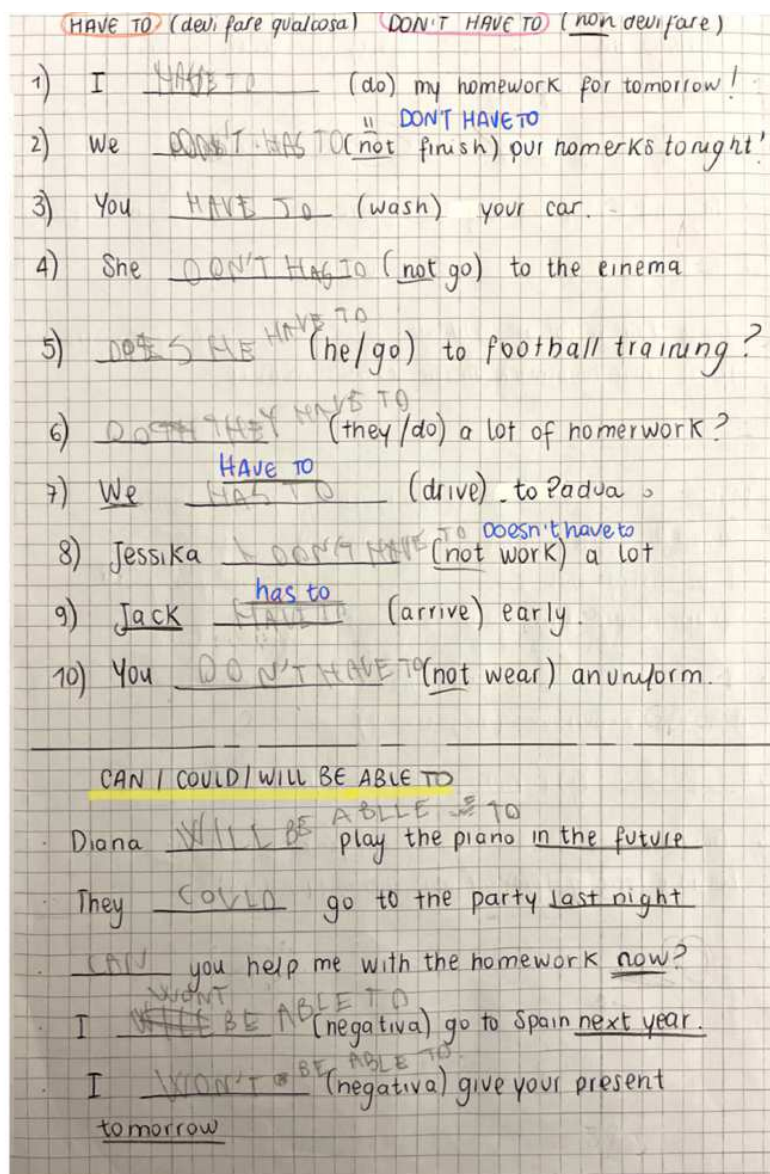 HAVE TO (devi fare qualcosa) DON'T HAVE TO (non devi fare)
1) I HAVE TO (do) my homework for tomorrow!
" DON'T HAVE TO
2) We DON'T HAS TO (not finish) our homerks tonight!
3) You HAVE TO (wash) your car.
4) She DON'T HAS TO (not go) to the cinema
5) DOES HE HAVE TO (he/go) to football training?
6) DO THEY HAVE TO (they/do) a lot of homerwork?
HAVE TO
7) We HAS TO (drive). to Padua.
Doesn't have to
8) Jessika DON'T HAVE TO (not work) a lot
has to
9) Jack HAVE TO (arrive) early.
10) You DON'T HAVE TO (not wear) an uniform.
CAN / COULD / WILL BE ABLE TO
Diana WILL BE ABLLE TO play the piano in the future
They COULD go to the party last night
CAN you help me with the homework now?
I WONT BE ABLE TO (negativa) go to Spain next year.
I WON'T BE ABLE TO (negativa) give your present
tomorrow